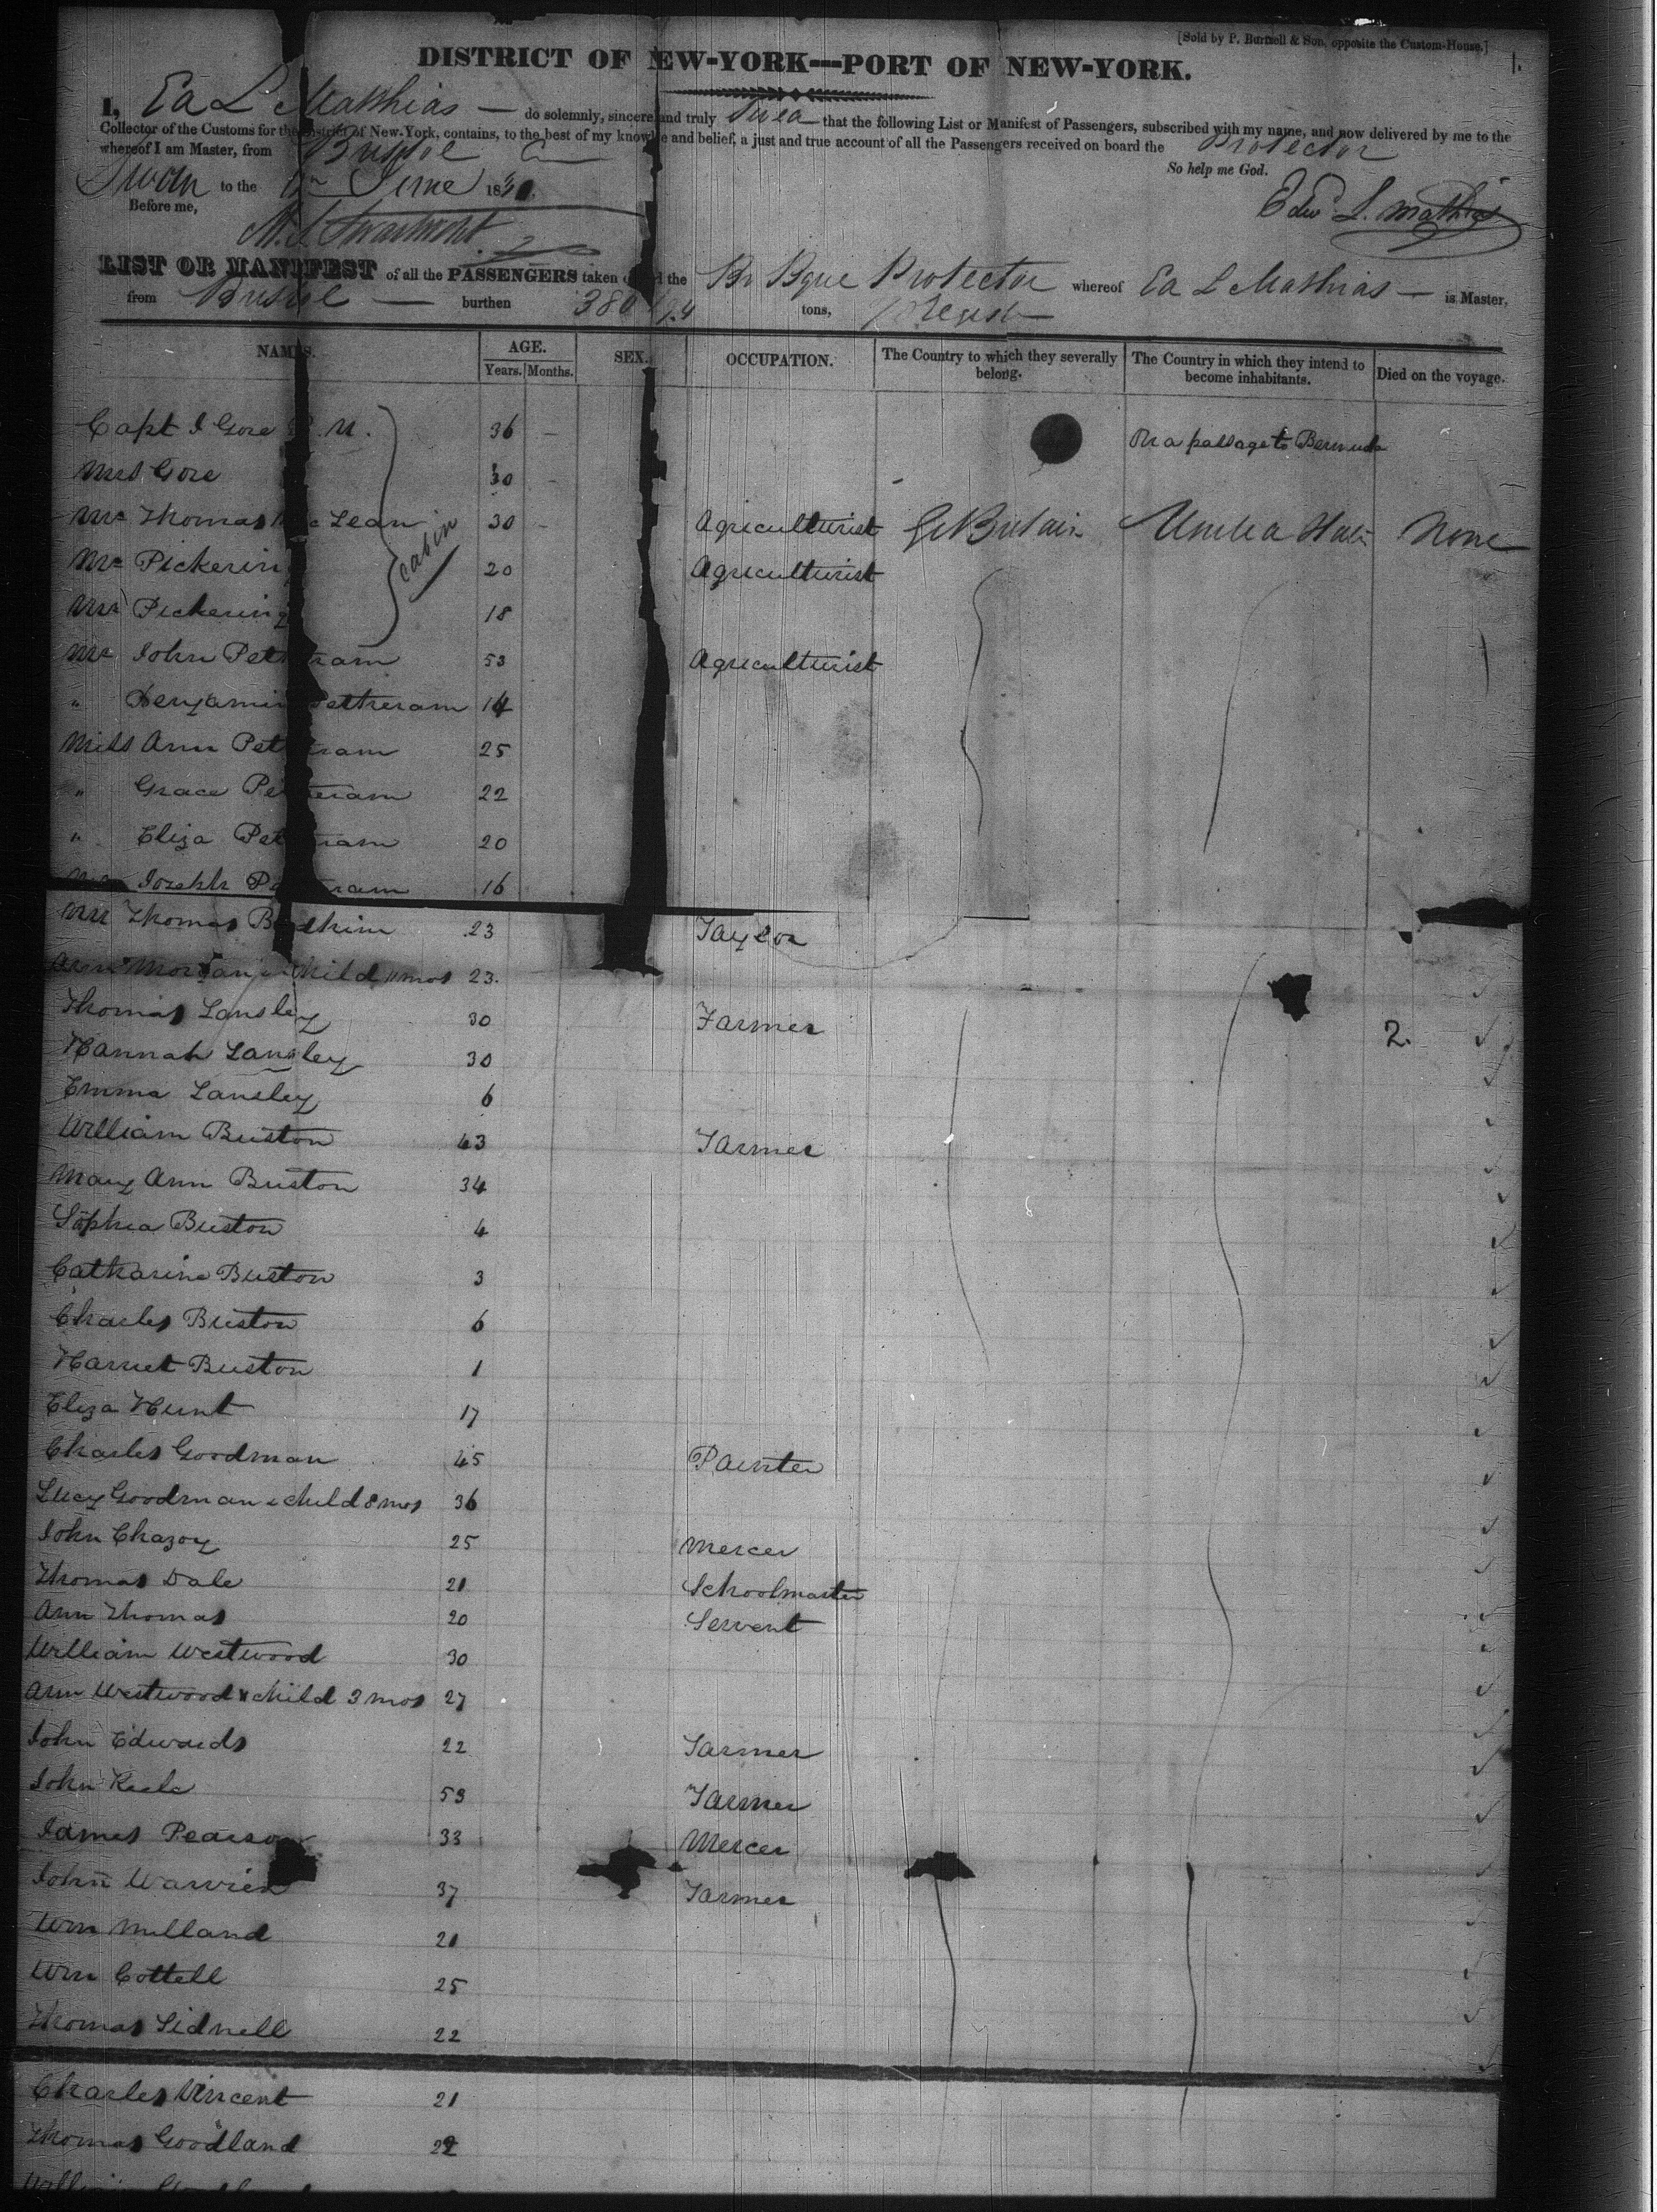 [Sold by P. Burtsell & Son, opposite the Custom-House.]
1.
DISTRICT OF NEW-YORK—PORT OF NEW-YORK.
I, Ed L Matthias — do solemnly, sincerely and truly Swear that the following List or Manifest of Passengers, subscribed with my name, and now delivered by me to the
Collector of the Customs for the District of New-York, contains, to the best of my knowle e and belief, a just and true account of all the Passengers received on board the Protector
whereof I am Master, from Bristol
So help me God.
Sworn to the June 183
Before me,
Edwd L. Mathias
LIST OR MANIFEST of all the PASSENGERS taken on board the Br Bque Protector whereof Ed L Mathias — is Master,
from Bristol — burthen 380 /94 tons,
NAMES. AGE. SEX. OCCUPATION. The Country to which they severally belong. The Country in which they intend to become inhabitants. Died on the voyage.
Years. Months.
Capt J Gore R. N. 36 — On a passage to Bermuda
Mrs Gore 30 -
Mr Thomas Mc Lean 30 - Agriculturist Gt Britain United States None
Cabin
Mr Pickering 20 Agriculturist
Mrs Pickering 18
Mr John Petheram 53 Agriculturist
" Benjamin Petheram 14
Miss Ann Petheram 25
" Grace Petheram 22
" Eliza Petheram 20
Mr Joseph Petheram 16
Mr Thomas B dkin 23 Taylor
Ann Morgan & Child 11 mos 23.
Thomas Lansley 30 Farmer 2.
Hannah Lansley 30
Emma Lansley 6
William Buston 43 Farmer
Mary Ann Buston 34
Sophia Buston 4
Catharine Buston 3
Charles Buston 6
Harriet Buston 1
Eliza Hunt 17
Charles Goodman 45 Painter
Lucy Goodman & child 8 mos 36
John Chazoy 25 Mercer
Thomas Dale 21 Schoolmaster
Ann Thomas 20 Servent
William Westwood 30
Ann Westwood & child 3 mos 27
John Edwards 22 Farmer
John 53 Farmer
James Pearson 33 Mercer
John Warrick 37 Farmer
Wm Milland 21
Wm Cottell 25
Thomas Sidnell 22
Charles Vincent 21
Thomas Goodland 22